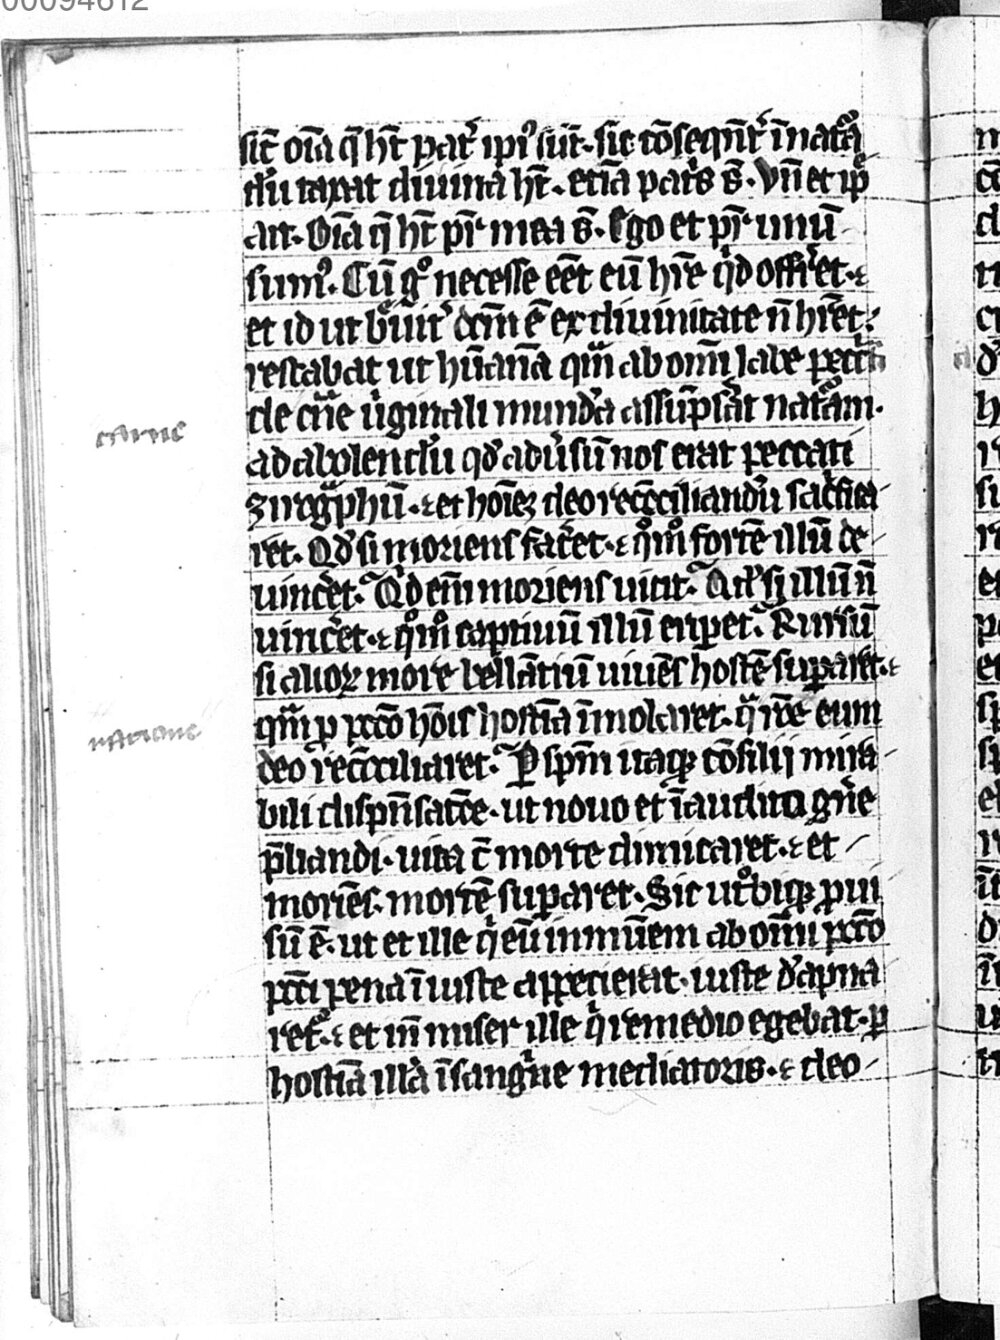 00094612
sic̄ oīa q̄ hꝫt pat̄ ipī sūt. sic cōseqn̄t̄ ī natā
dūtaxat diuina hꝫt. etiā pat̄s ē. Vn̄ et ip̄
ait. Oīa q̄ hꝫt pr̄ mea ē. Ego et pr̄ unū
sumꝰ. Cū gͦ necesse eēt eū hr̄e qd offr̄et.
et id ut b̄uit̄ dc̄m ē ex diuinitate n̄ hr̄et.
restabat ut hūanā qm̄ ab omī labe pecc̄i
de cn̄e ūginali mundā assūpsāt natām.
ad abolendū qd̄ adūsū nos erat peccati
ziroḡphū. et hoīeꝫ deo recōciliandū sac̄fica
ret. Qd̄ si moriens fac̄et. qͦmͦ fortē illū de
uinc̄et. Qd em̄ moriens uicit. At̄ si illū n̄
uinc̄et. qͦmͦ captiuū illū erip̄et. Rursū
si alioꝝ more bellātiū uiuēs hostē suꝑaret.
qm̄ ꝓ pcc̄o hoīs hostiā īmolaret. eum
deo rec̄ciliaret. ꝑ spm̄ itaqꝫ cōsilij mira
bili dispn̄satōe. ut nouo et īaudito gn̄e
p̄liandi. uita c̄ morte dimicaret. et
moriēs. mortē suꝑaret. Sic ut̄obiqꝫ ꝓui
sū ē. ut et ille q̄ eū inmūem ab omī pcc̄o
pcc̄i pena īiuste appecierat. iuste
ret. et miser ille q̄ remedio egebat. ꝑ
hostiā illā ī sangn̄e mediatoris. deo
carne